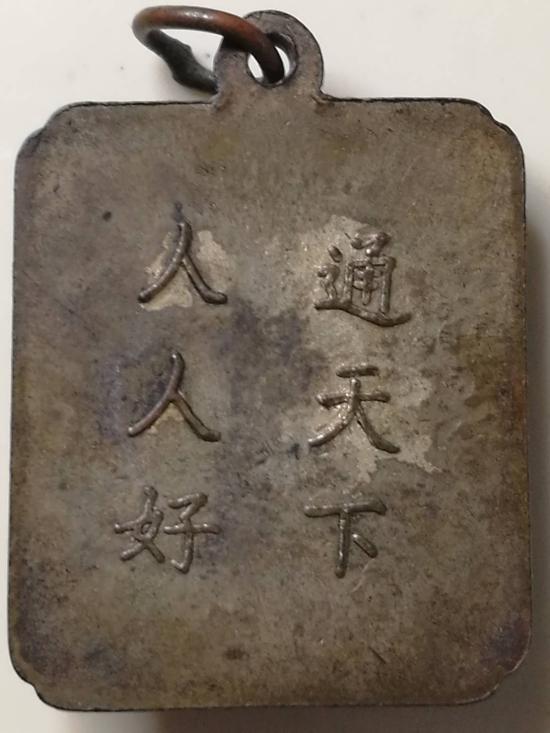 通天下
人人好